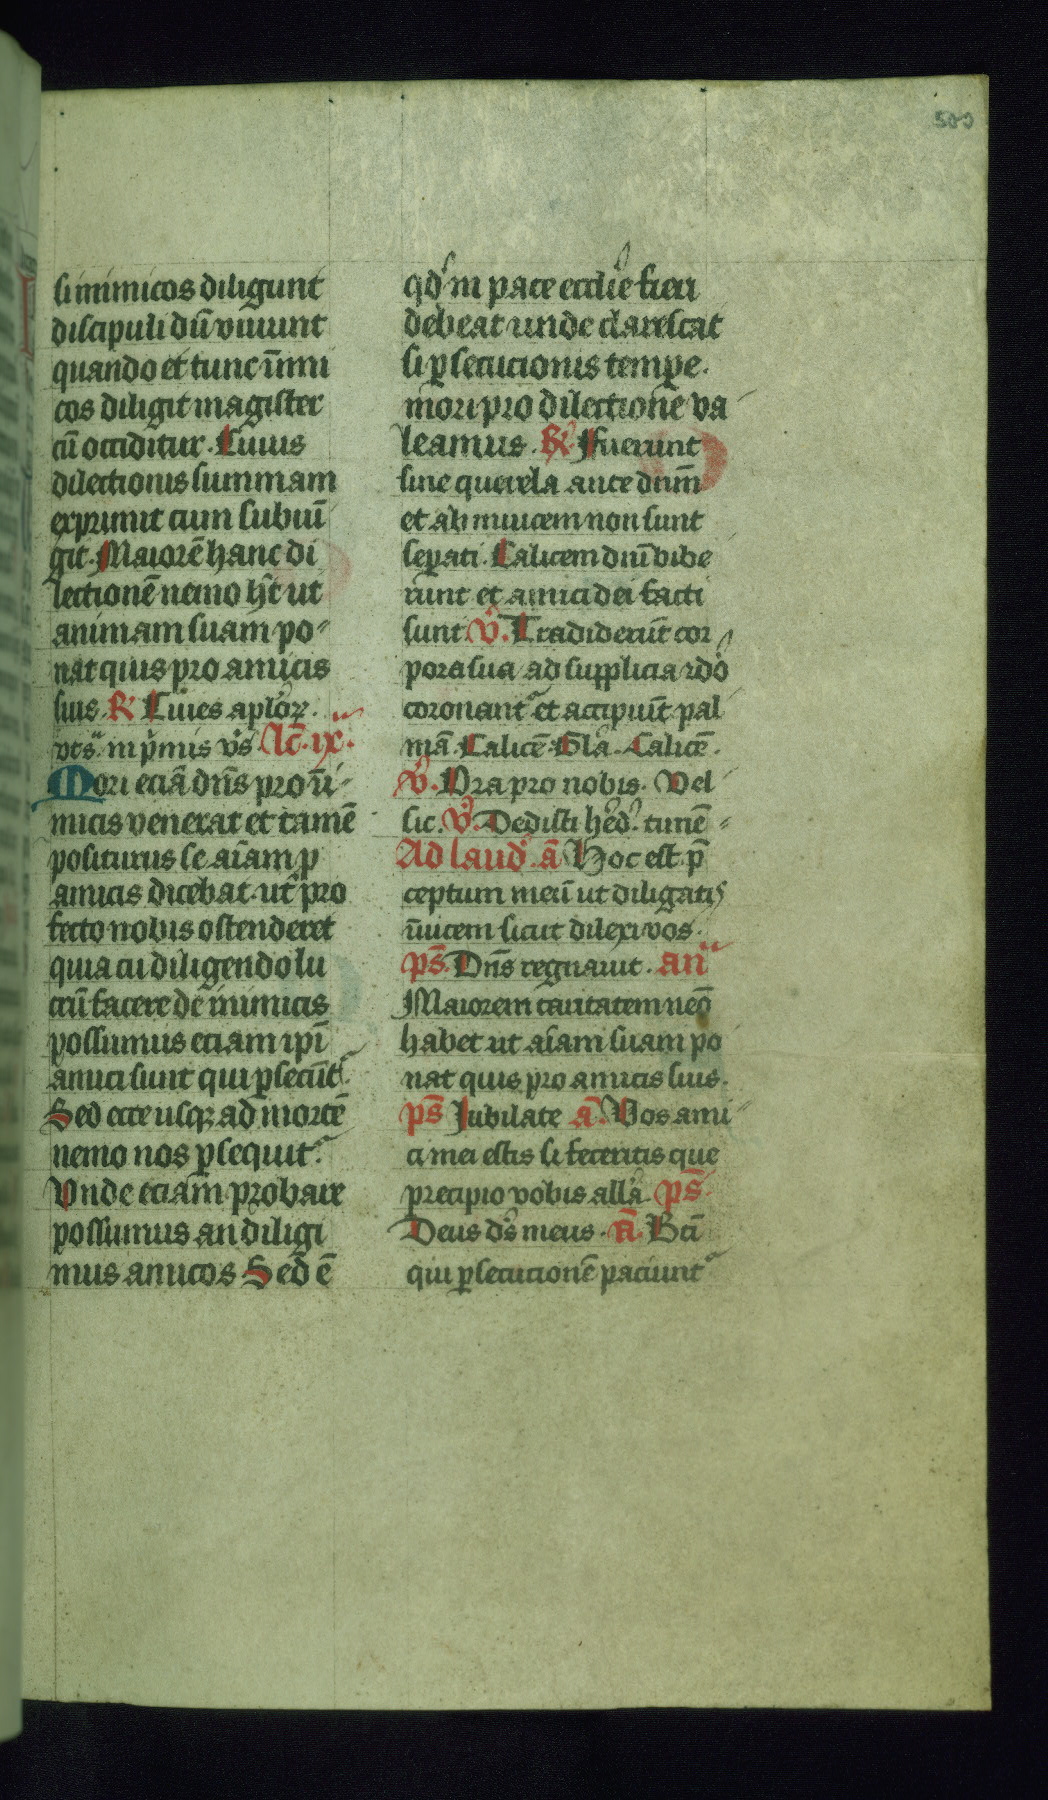 500
si inimicos diligunt
discipuli dū viuunt
quando et tunc īimi
cos diligit magister
cū occiditur. Cuius
dilectionis summam
exprimit cum subiū
git. Maiorē hanc di
lectionē nemo hꝫ ut
animam suam po-
nat quis pro amicis
suis. R Ciues aplōꝝ.
vts. in pͥmis vs̄ Lc̄. ix.
Mori eciā dn̄s pro ī-
micis venerat et tamē
positurus se aīam p̄
amicis dicebat. ut pro
fecto nobis ostenderet
quia cū diligendo lu
crū facere de inimicis
possumus eciam ipī
amici sunt qui ꝑsecūt᷑.
Sed ecce usqꝫ ad mortē
nemo nos ꝑsequit᷑.
Vnde eciam probare
possumus an diligi
mus amicos Sed ē
qd̄ in pace eccl̄ie fieri
debeat unde clarescat
si ꝑsecucionis tempe.
mori pro dilectione va
leamus. R. Fuerunt
sine querela ante dn̄m
et ab inuicem non sunt
seꝑati. Calicem dn̄i bibe
runt et amici dei facti
sunt V. Tradiderūt cor
pora sua ad supplicia id̄o
coronant᷑ et accipiūt pal
mā. Calicē. Gl̄a. Calicē.
V. Ora pro nobis. Vel
sic. V. Dedisti hēd. timē-
Ad laud. ā Hoc est p̄
ceptum meū ut diligatis
īuicem sicut dilexi vos.
ps̄. Dn̄s regnauit. an
Maiorem caritatem nēo
habet ut aīam suam po
nat quis pro amicis suis.
ps̄ Jubilate ā. Vos ami-
ci mei estis si feceritis que
precipio vobis all̄a. ps̄.
Deus ds̄ meus. ā. Bt̄i
qui ꝑsecucionē paciunt᷑